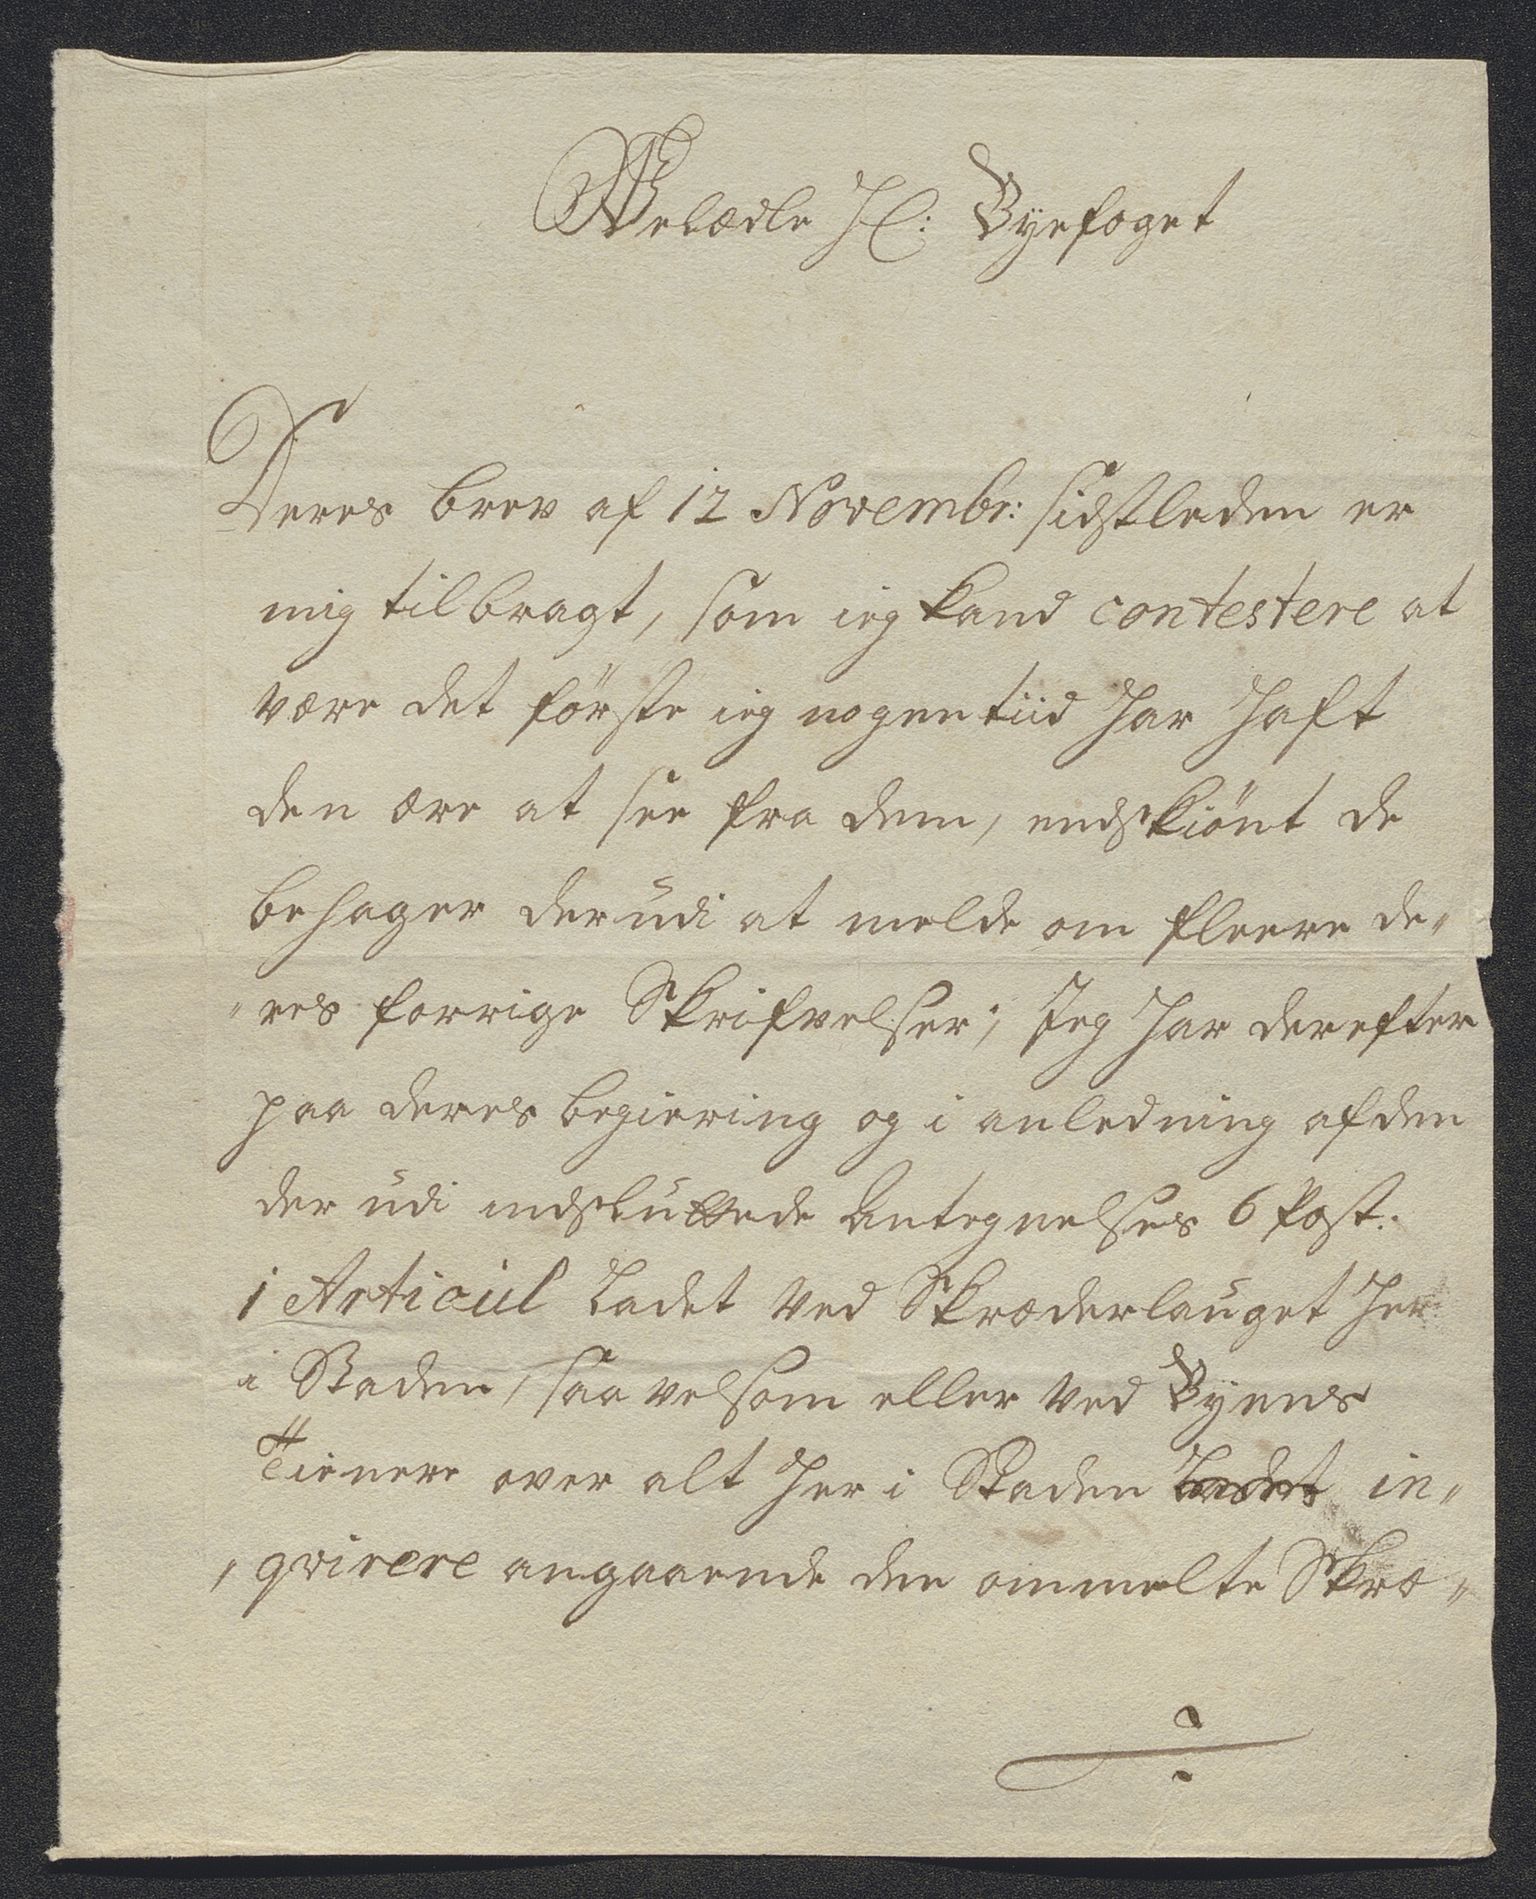 Welædle Hl: Byefoget
Deres brev af 12 Novembr: sidstleden er
mig tilbragt, som ieg kand contestere at
være det förste ieg nogentiid har haft
den ære at see fra dem, endskiönt de
behager derudi at melde om fleere de„
„res forrige Skrifvelser; Jeg har derefter
paa deres begiering og i anledning af den
der udi indsluttede Antegnelses 6 Post.
1 Articul ladet ved Skræderlauget her
i Staden, saavelsom eller ved Byens
Tienere over alt her i Staden ladet in„
„qvirere angaaende den ommelte Skræ„